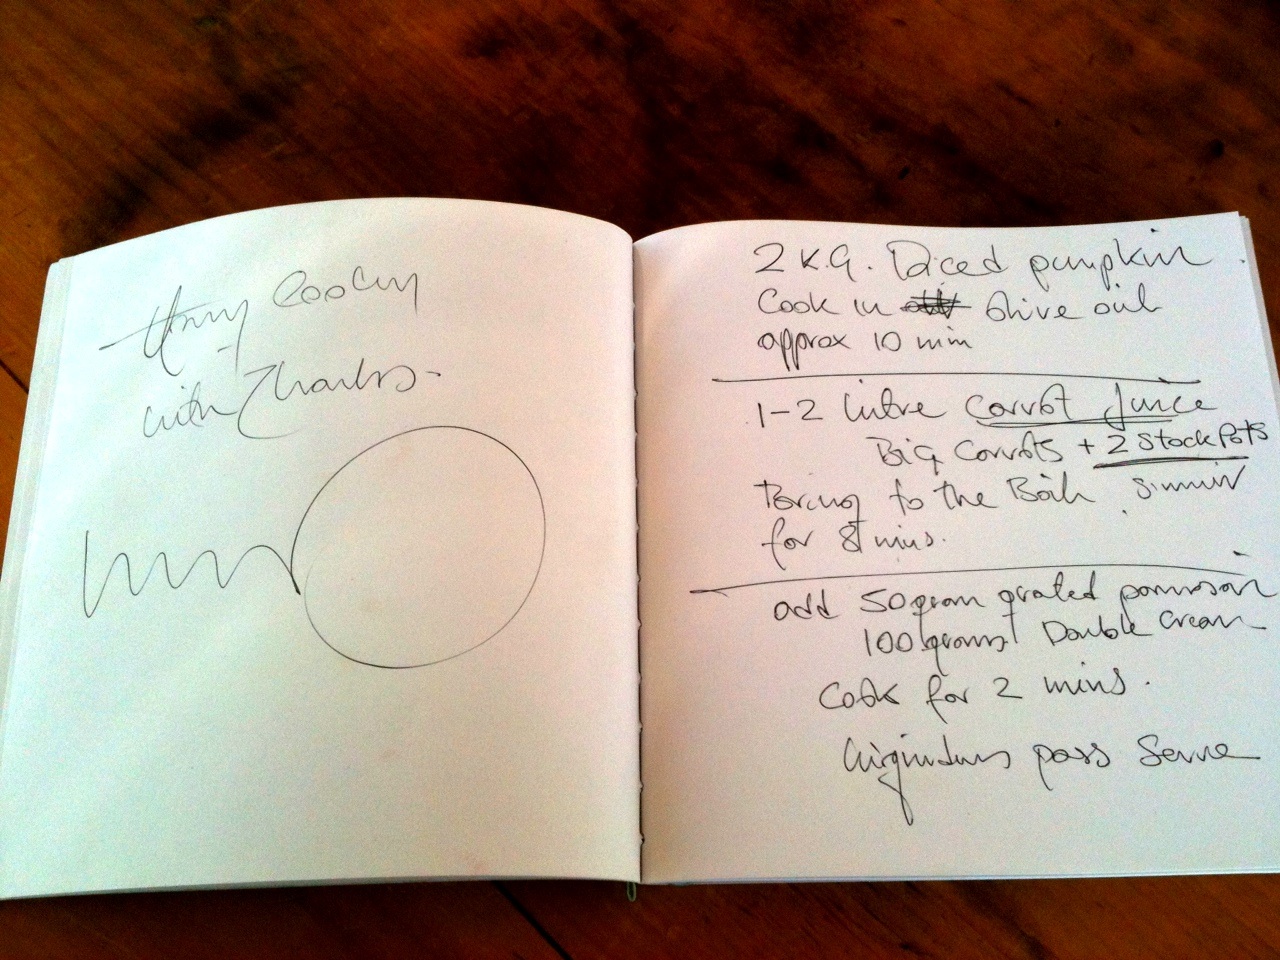 with
2 K.G. Diced pumpkin
Cook in Olive oil
approx 10 min
1-2 litre carrot juice
Big carrots + 2 Stock Pots
Bring to the Boil Simmir
for 8 mins.
add 50 gram grated parmesan
100 grams Double cream
Cook for 2 mins.
pass Serve